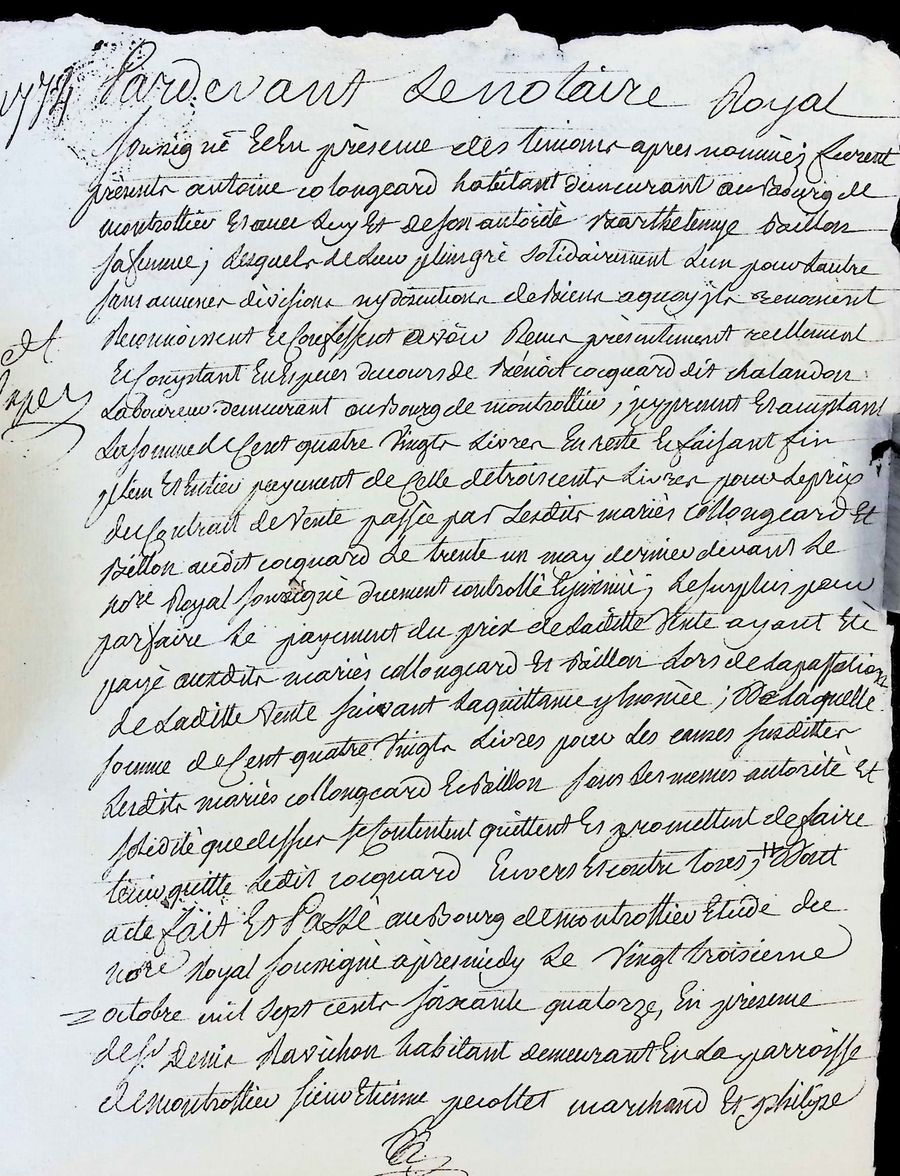 1774
Pardevant Le notaire Royal
soussigné Et En présence des témoins apres nommés, furent
présents antoine colongeard habitant demeurant au Bourg de
montrottier Et avec Luy Et de son autorité Barthelemye Baillon
sa femme; Lesquels de Leur plein gré solidairement L'un pour L'autre
sans aucunes divisions ny discutions de Biens a quoy ils renoncent
Reconnoissent Et Confessent avoir Reçu présentement réellement
Et Comptant En Espèces du cours de Bénoit cocquard dit chalandon
Laboureur demeurant au Bourg de montrottier; icy présent Et acceptant
La somme de Cent quatre Vingts Livres En reste Et faisant fin
plein Et Entier payement de Celle de trois cents Livres pour Le prix
du Contrait de Vente passée par Lesdits mariés collongeard Et
Béllon audit cocquard Le trente un may dernier devant Le
nore Royal soussigné duement controllé Et insinué; Le surplus pour
parfaire Le payement du prix de Laditte Vente ayant Eté
payé auxdits mariés collongeard Et Baillon Lors de La passation
de Laditte Vente suivant La quittance y Enoncée; De Laquelle
somme de Cent quatre Vingts Livres pour Les causes susdittes
Lesdits mariés collongeard Et Baillon sous Les memes autorité Et
solidité que dessus se Contentent quittent Et promettent de faire
tenir quitte Ledit cocquard Envers Et contre tous; Dont
acte fait Et Passé au Bourg de montrottier Etude du
nore Royal soussigné apres midy Le Vingt troisieme
octobre mil sept cents soixante quatorze, En présence
de sr Denis Ravichon habitant demeurant En La parroisse
de montrottier sieur Etienne pecollet marchand Et philipe